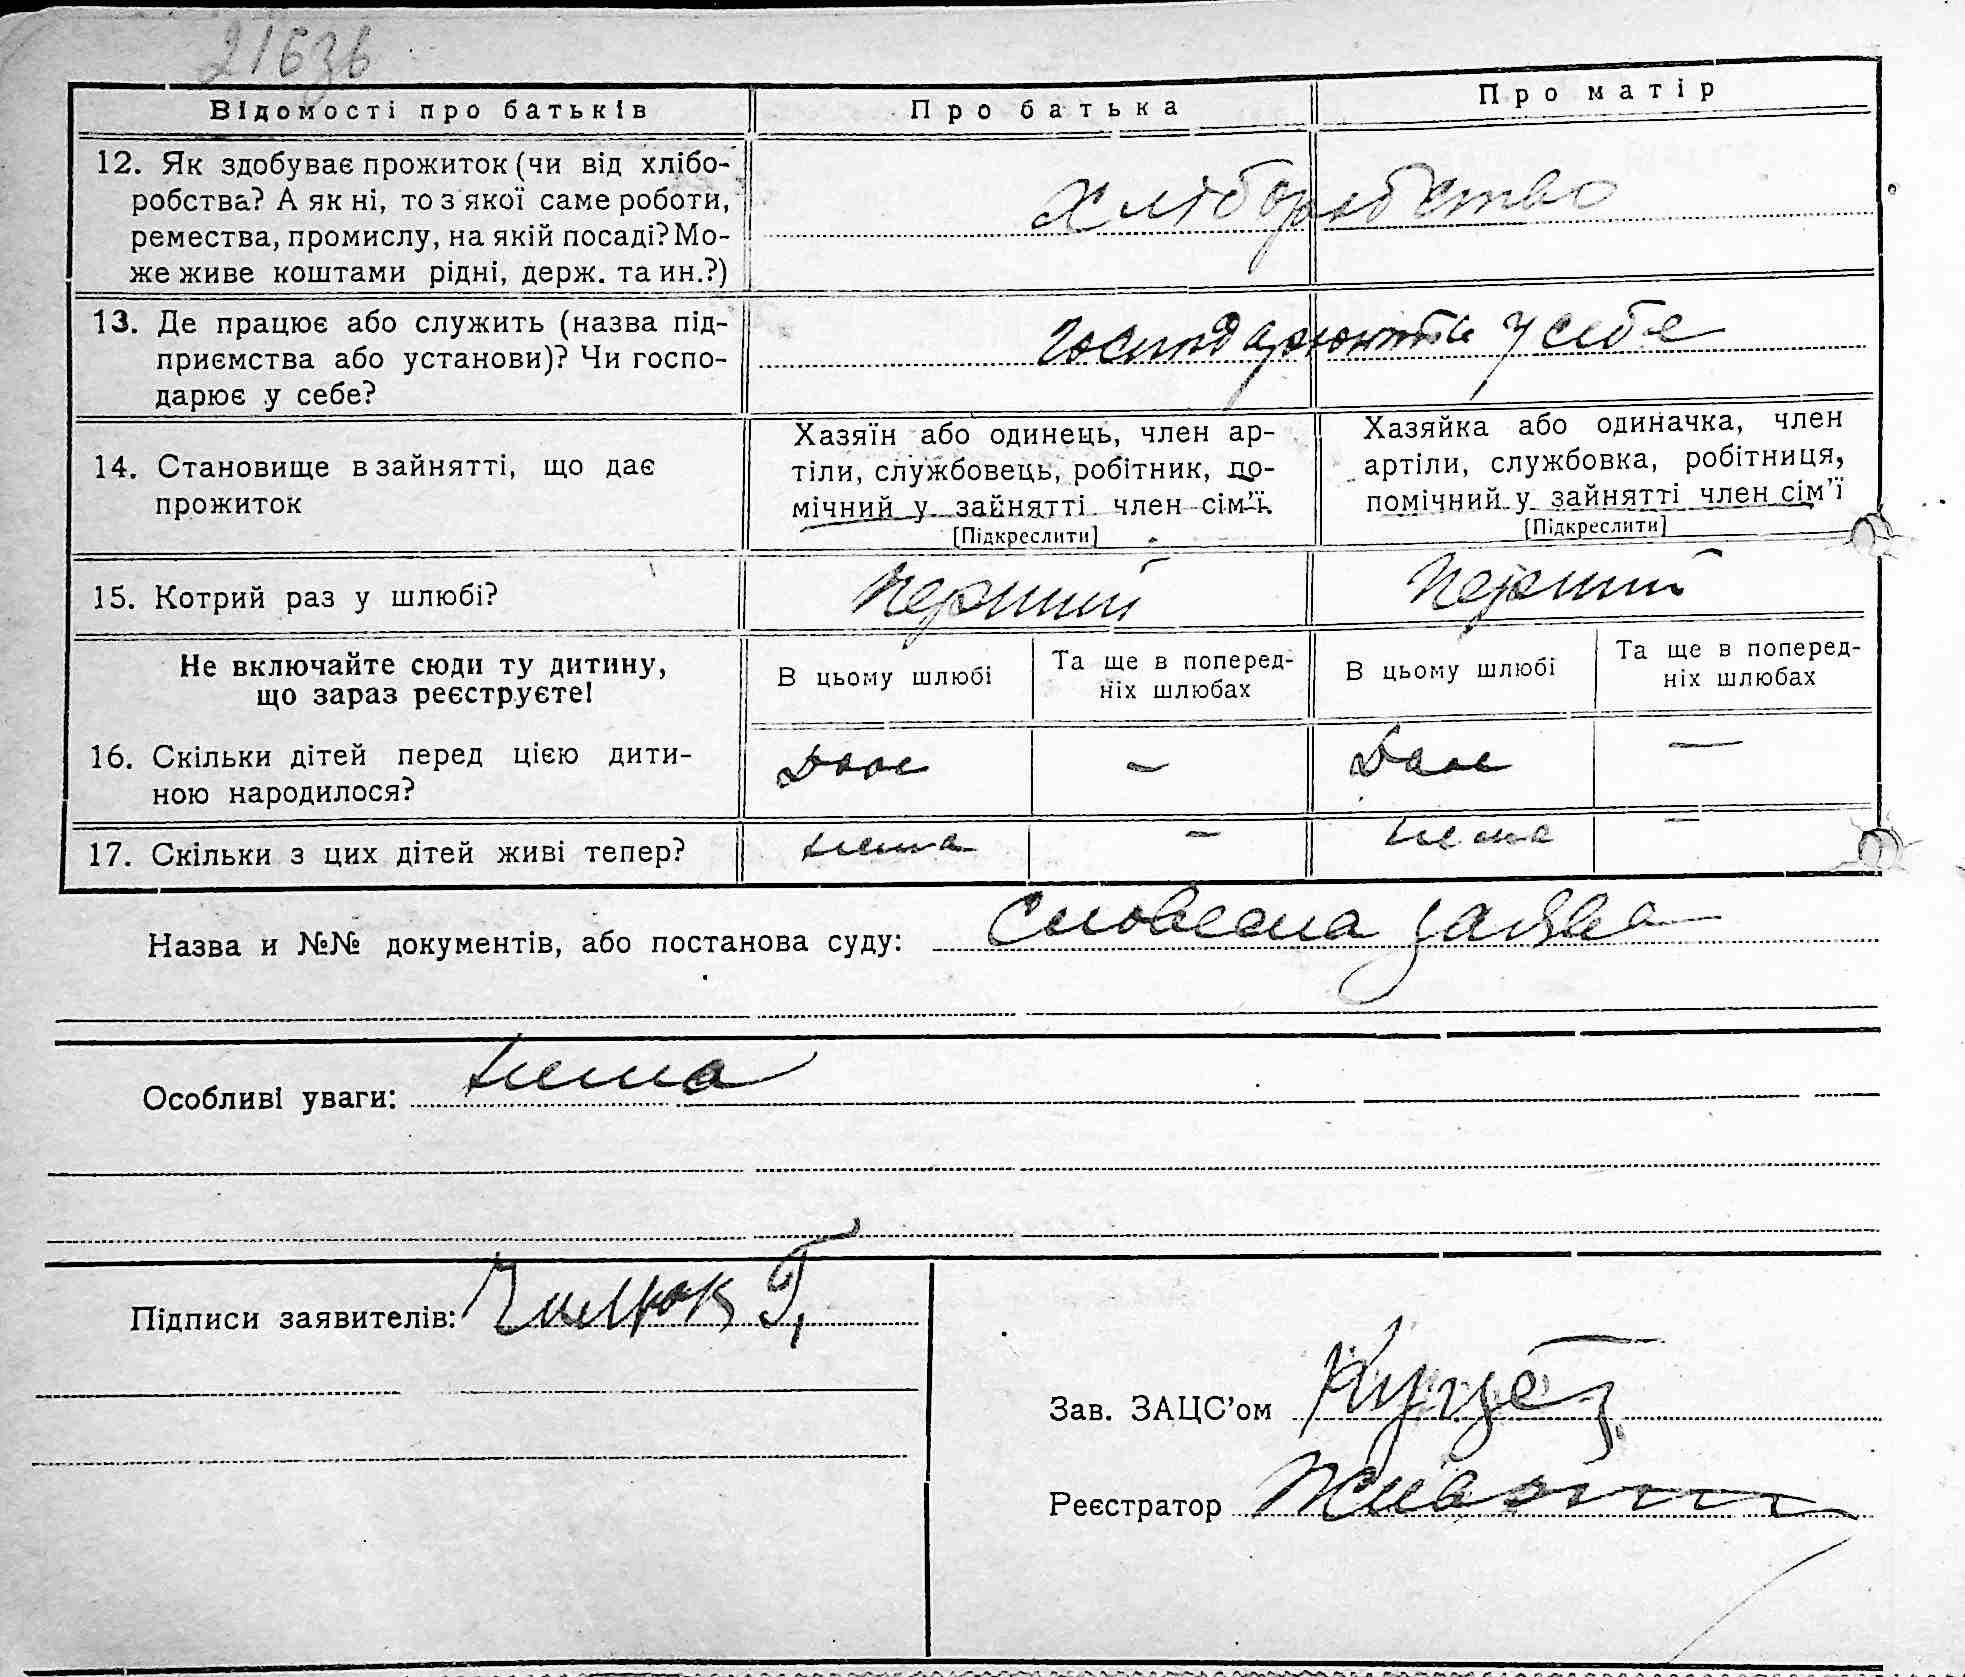 216зв
Відомості про батьків
Про батька
Про матір
12. Як здобуває прожиток (чи від хлібо-
робства? А як ні, то з якої саме роботи,
ремества, промислу, на якій посаді? Мо-
же живе коштами рідні, держ. та ин.?)
хліборобство
13. Де працює або служить (назва під-
приємства або установи)? Чи госпо-
дарює у себе?
господарюють у себе
14. Становище в зайнятті, що дає
прожиток
Хазяїн або одинець, член ар-
тіли, службовець, робітник, по-
мічний у зайнятті член сім'ї.
[Підкреслити]
Хазяйка або одиначка, член
артіли, службовка, робітниця,
помічний у зайнятті член сім'ї
[Підкреслити]
15. Котрий раз у шлюбі?
перший
перший
Не включайте сюди ту дитину,
що зараз реєструєте!
В цьому шлюбі
Та ще в поперед-
ніх шлюбах
В цьому шлюбі
Та ще в поперед-
ніх шлюбах
16. Скільки дітей перед цією дити-
ною народилося?
Двоє
—
Двоє
—
17. Скільки з цих дітей живі тепер?
нема
—
нема
—
Назва и №№ документів, або постанова суду: Словесна заява
Особливі уваги: нема
Підписи заявителів:
Зав. ЗАЦС'ом
Реєстратор